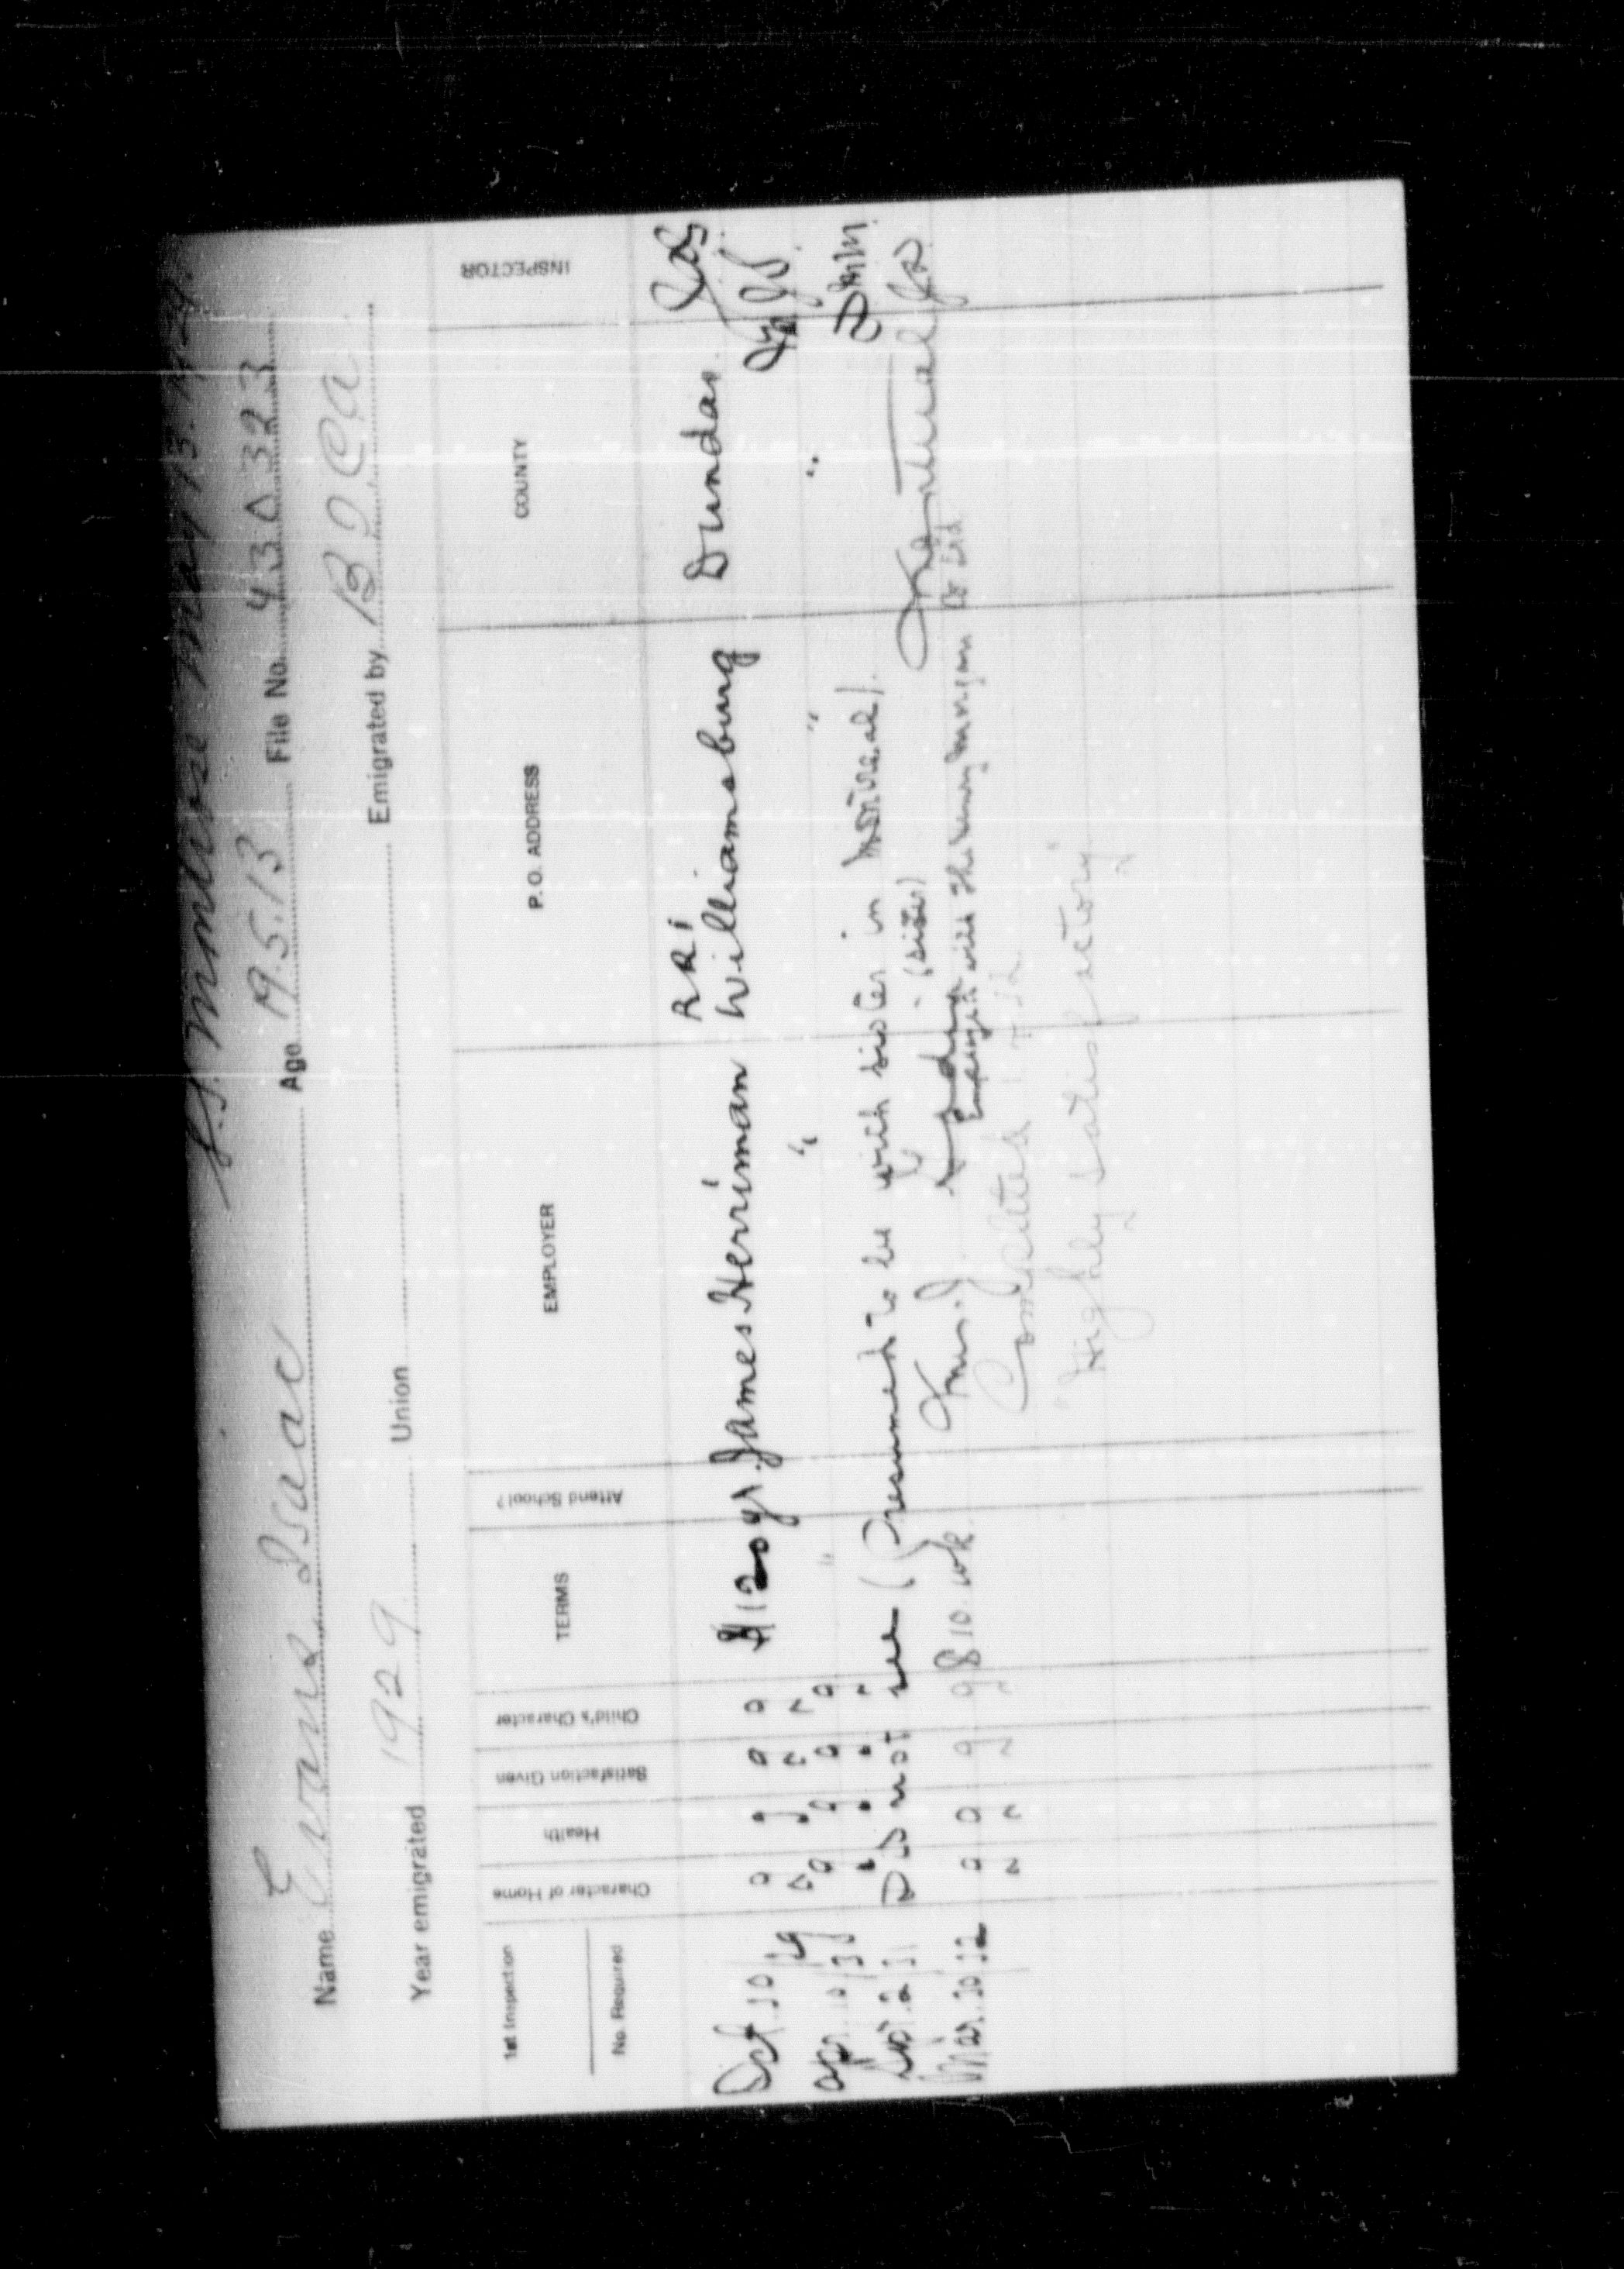 S.S. Montrose May 13. 1929
Name Evans Isaac Age 19.5.13 File No. 430323
Year emigrated 1929 Union Emigrated by B I C A
1st Inspection
No. Required
Character of Home
Health
Satisfaction Given
Child's Character
TERMS
Attend School?
EMPLOYER
P. O. ADDRESS
COUNTY
INSPECTOR
RR1
Oct 10/29 g g g g $120 yr. James Herriman Williamsburg Dundas
Apr 10/30 g g g g " " " "
2 31 Did not see (Presumed to be with sister in Montreal).
Mar. 30/32 g g g g $10. wk. (sister) Montreal
Employed with The Henry Morgan Co Ltd
Completed
"Highly satisfactory"